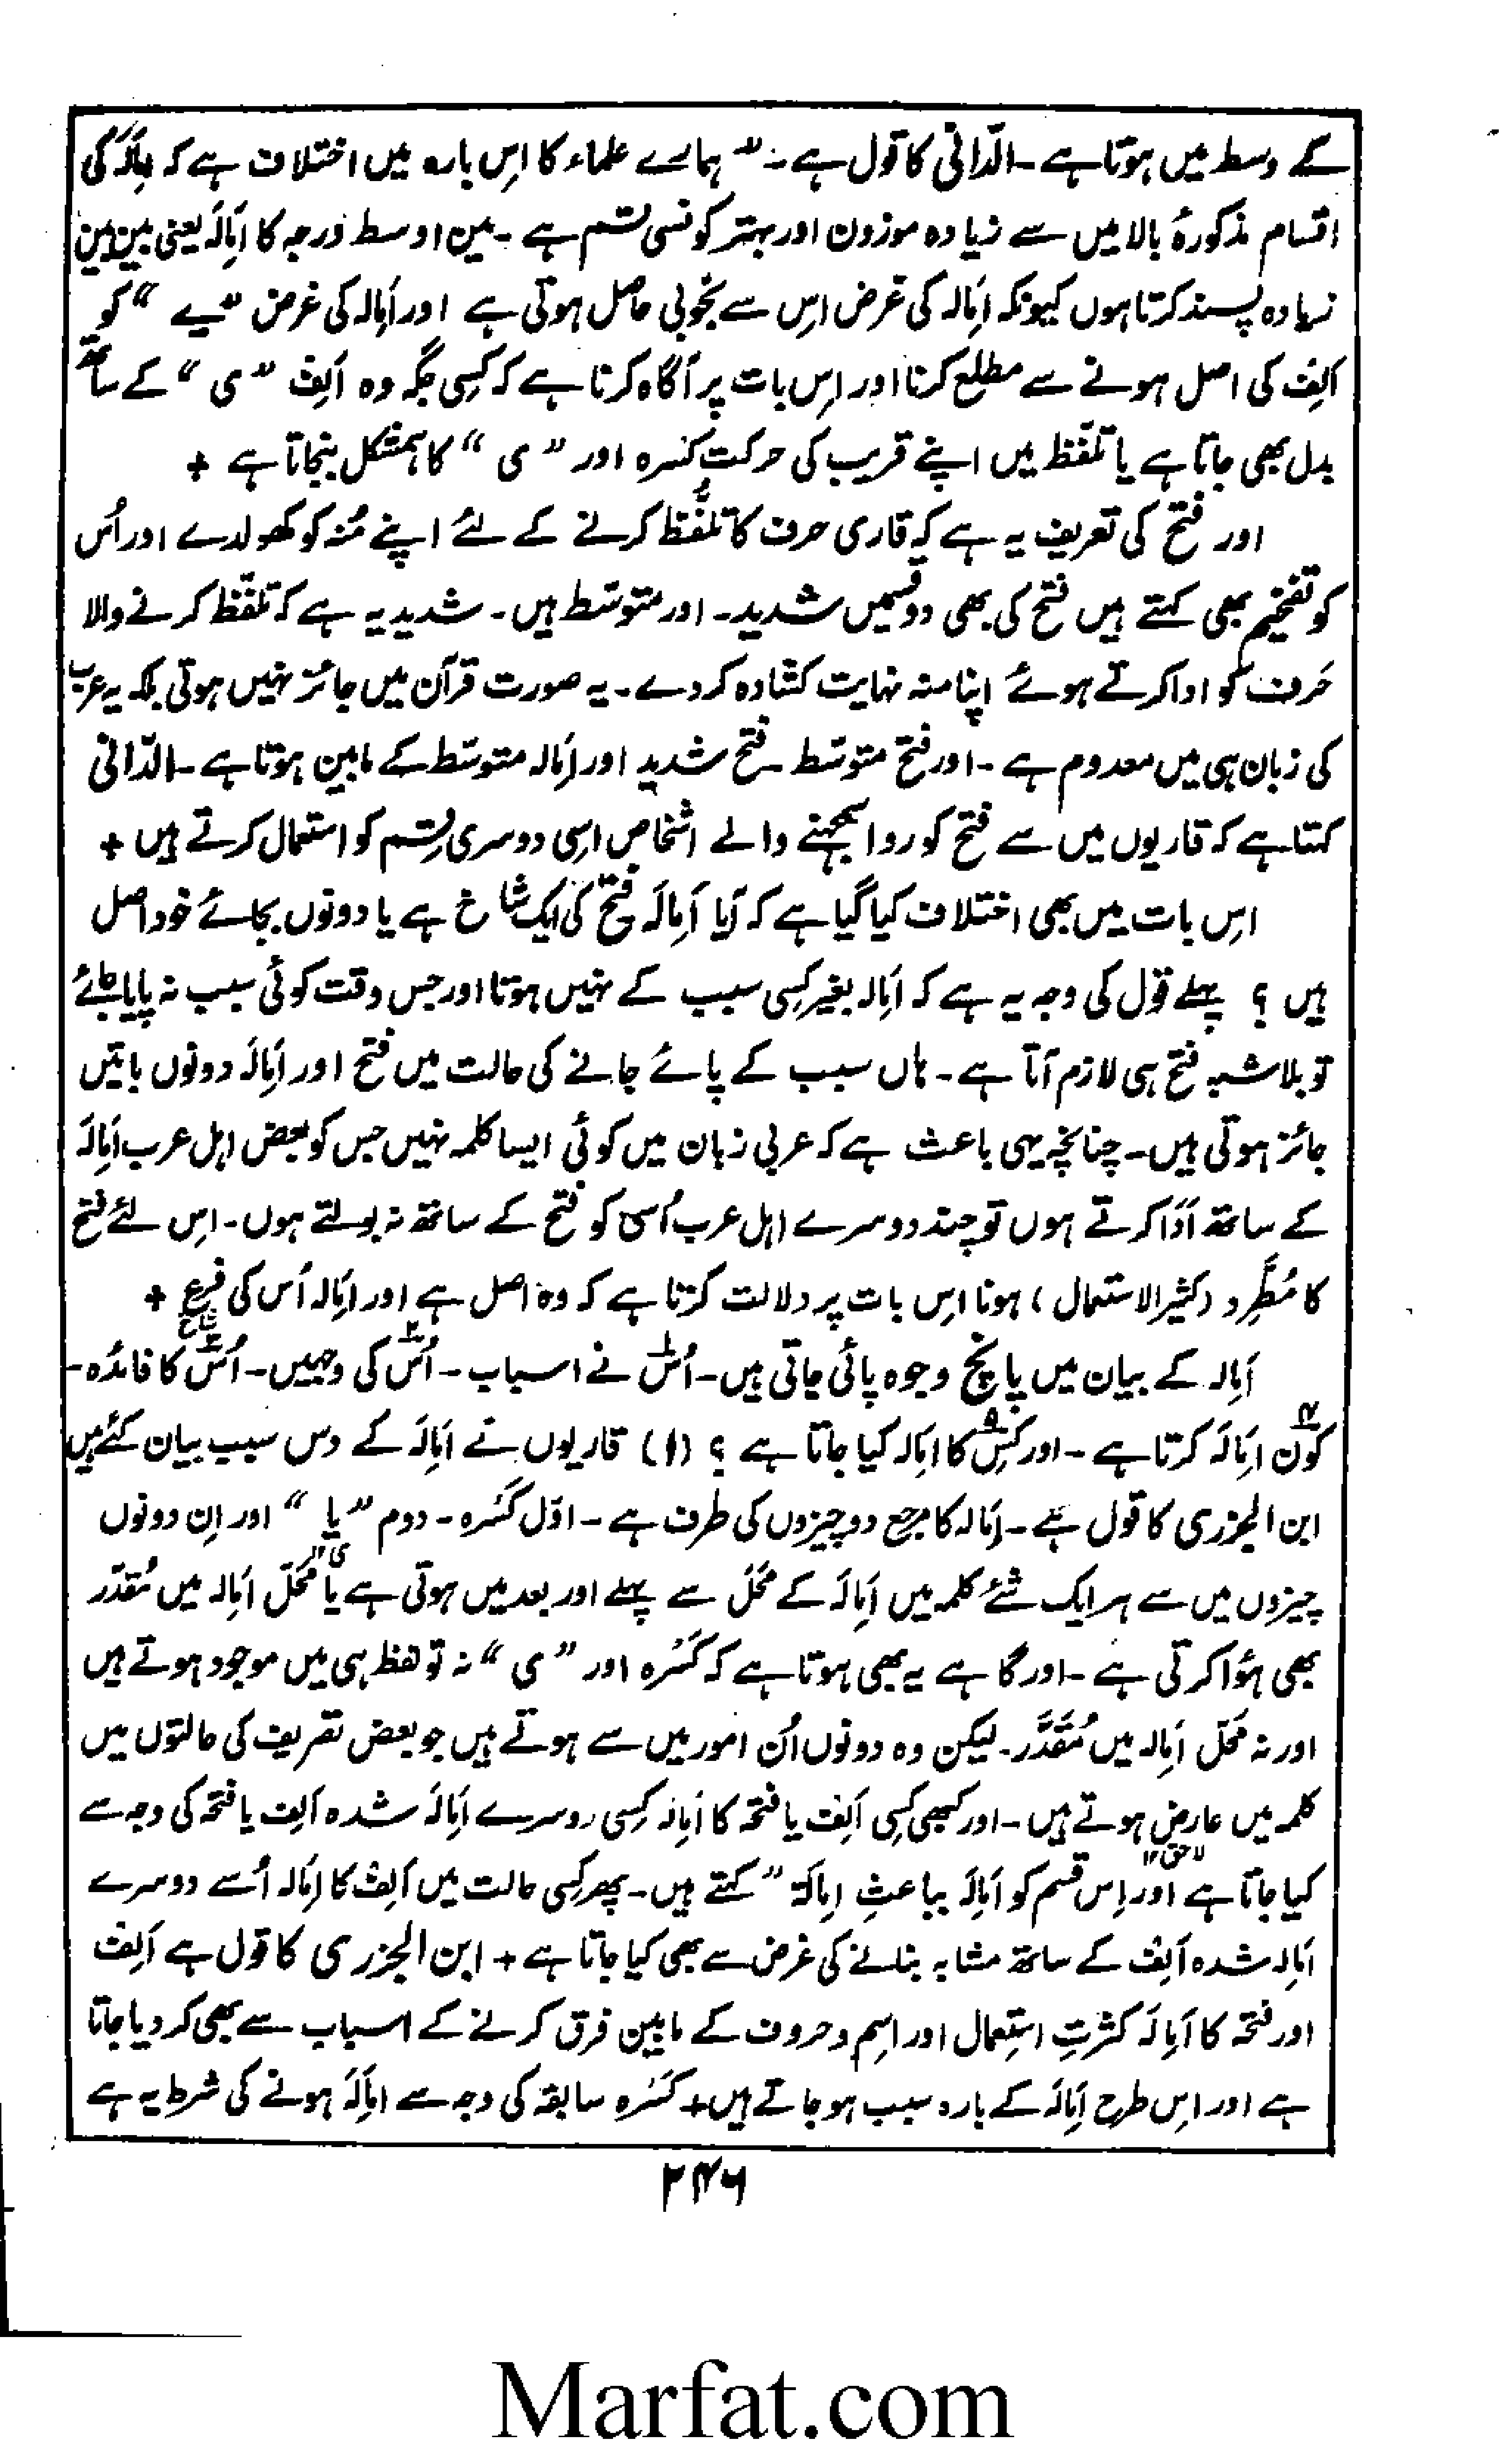 کے وسط میں ہوتا ہے۔ الدّانی کا قول ہے :۔ “ ہمارے علماء کا اِس بارہ میں اختلاف ہے کہ اِمالَہ کی
اقسام مذکورۂ بالا میں سے زیادہ موزون اور بہتر کونسی قسم ہے۔ مین اوسط درجہ کا اِمَالَہ یعنی بین بین
زیادہ پسند کرتا ہوں کیونکہ اِمَالہ کی غرض اِس سے بخوبی حاصل ہوتی ہے اور اِمالہ کی غرض “یے” کو
اَلِف کی اصل ہونے سے مطلع کرنا اور اِس بات پر آگاہ کرنا ہے کہ کسِی جگہ وہ اَلِف “ی” کے ساتھ
بدل بھی جاتا ہے یا تلفّظ میں اپنے قریب کی حرکت کسرہ اور “ی” کا ہمشکل بنجاتا ہے +
اور فتح کی تعریف یہ ہے کہ قاری حرف کا تلفُّظ کرنے کے لئے اپنے مُنہ کو کھولدے اور اُس
کو تفخیم بھی کہتے ہیں فتح کی بھی دو قسمیں شدید۔ اور متوسّط ہیں۔ شدید یہ ہے کہ تلفّظ کرنے والا
حَرف کو ادا کرتے ہوئے اپنا منہ نہایت کشادہ کردے۔ یہ صورت قرآن میں جائز نہیں ہوتی بلکہ یہ عرب
کی زبان ہی میں معدوم ہے۔ اور فتح متوسّط فتح شدید اور اِمَالہ متوسّط کے مابین ہوتا ہے۔ الدّانی
کہتا ہے کہ قاریوں میں سے فتح کو روا سمجہنے والے اشخاص اِسی دوسری قِسم کو استعمال کرتے ہیں +
اِس بات میں بھی اختلاف کیا گیا ہے کہ آیا اِمالَہ فتح کی ایک شاخ ہے یا دونوں بجائے خود اصل
ہیں ؟ پہلے قول کی وجہ یہ ہے کہ اِمَالہ بغیر کسِی سبب کے نہیں ہوتا اور جس وقت کوئی سبب نہ پایا جائے
تو بلا شبہ فتح ہی لازم آتا ہے۔ ہاں سبب کے پائے جانے کی حالت میں فتح اور اِمَالَہ دونوں باتیں
جائز ہوتی ہیں۔ چنانچہ یہی باعث ہے کہ عربی زبان میں کوئی ایسا کلمہ نہیں جس کو بعض اہل عرب اِمَالَہ
کے ساتھ اَدَا کرتے ہوں تو چند دوسرے اہل عرب اُسی کو فتح کے ساتھ نہ بولتے ہوں۔ اِس لئے فتح
کا مُطَّرِد (کثیر الاستعمال) ہونا اِس بات پر دلالت کرتا ہے کہ وہ اصل ہے اور اِمَالہ اُس کی فرع +
شاخ
اِمَالہ کے بیان میں پانچ وجوہ پائی جاتی ہیں۔ اُس۱ نے اسباب۔ اُس۲ کی وجہیں۔ اُس۳ کا فائدہ۔
کون۴ اِمَالَہ کرتا ہے۔ اور کِس۵ کا اِمَالہ کیا جاتا ہے ؟ (۱) قاریوں نے اِمَالَہ کے دس سبب بیان کئے ہیں
ابن الجزری کا قول ہے۔ اِمَالہ کا مرجع دو چیزوں کی طرف ہے۔ اوّل کَسْرہ۔ دوم “یا” اور اِن دونوں
“ی”
چیزوں میں سے ہر ایک شَئے کلمہ میں اِمَالَہ کے محَلّ سے پہلے اور بعد میں ہوتی ہے یا محَلّ اِمَالہ میں مُقدّر
بھی ہُوا کرتی ہے۔ اور گاہے یہ بھی ہوتا ہے کہ کَسْرہ اور “ی” نہ تو لفظ ہی میں موجود ہوتے ہیں
اور نہ محَلّ اِمَالہ میں مُقَدَّر۔ لیکن وہ دونوں اُن امور میں سے ہوتے ہیں جو بعض تصریف کی حالتوں میں
کلمہ میں عارض ہوتے ہیں۔ اور کبھی کسِی اَلِف یا فتحہ کا اِمَالہ کِسی دوسرے اِمَالَہ شدہ اَلِف یا فتحہ کی وجہ سے
کیا جاتا ہے اور اِس قسم کو اِمَالَہ بباعثِ اِمَالۃ” کہتے ہیں۔ پھر کسِی حالت میں اَلِف کا اِمَالہ اُسے دوسرے
اِمَالہ شدہ اَلِف کے ساتھ مشابہ بنانے کی غرض سے بھی کیا جاتا ہے + ابن الجزری کا قول ہے اَلِف
اور فتحہ کا اِمَالَہ کثرتِ استِعمال اور اِسم و حروف کے مابین فرق کرنے کے اسباب سے بھی کر دیا جاتا
ہے اور اِس طرح اِمَالَہ کے بارہ سبب ہو جاتے ہیں + کَسْرہ سابقہ کی وجہ سے اِمَالَہ ہونے کی شرط یہ ہے
۲۴۶
Marfat.com